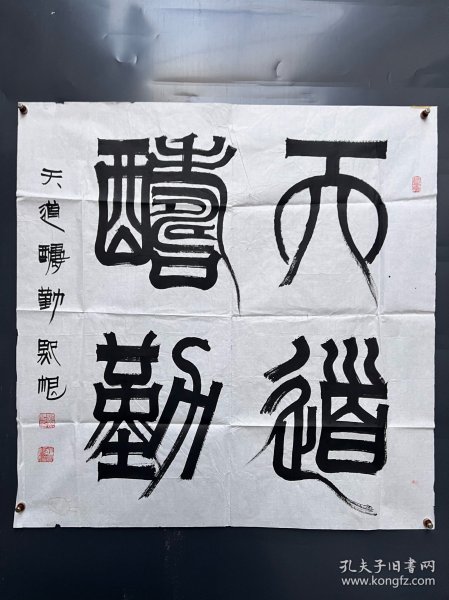 天道
酬勤
天道酬勤
孔夫子旧书网
www.kongfz.com